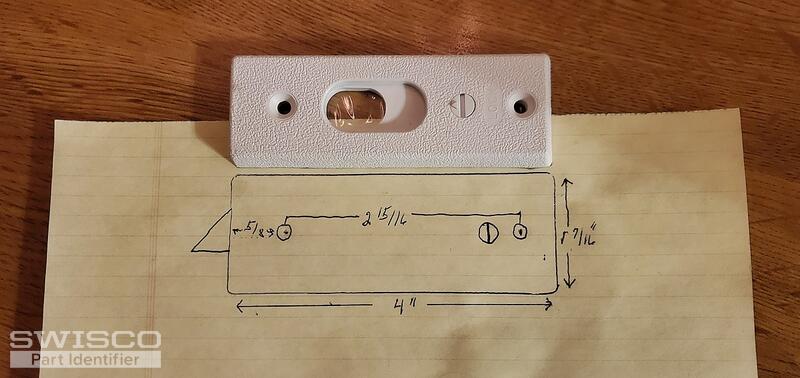 2 15/16
5/8
1 7/16"
4"
SWISCO
Part Identifier